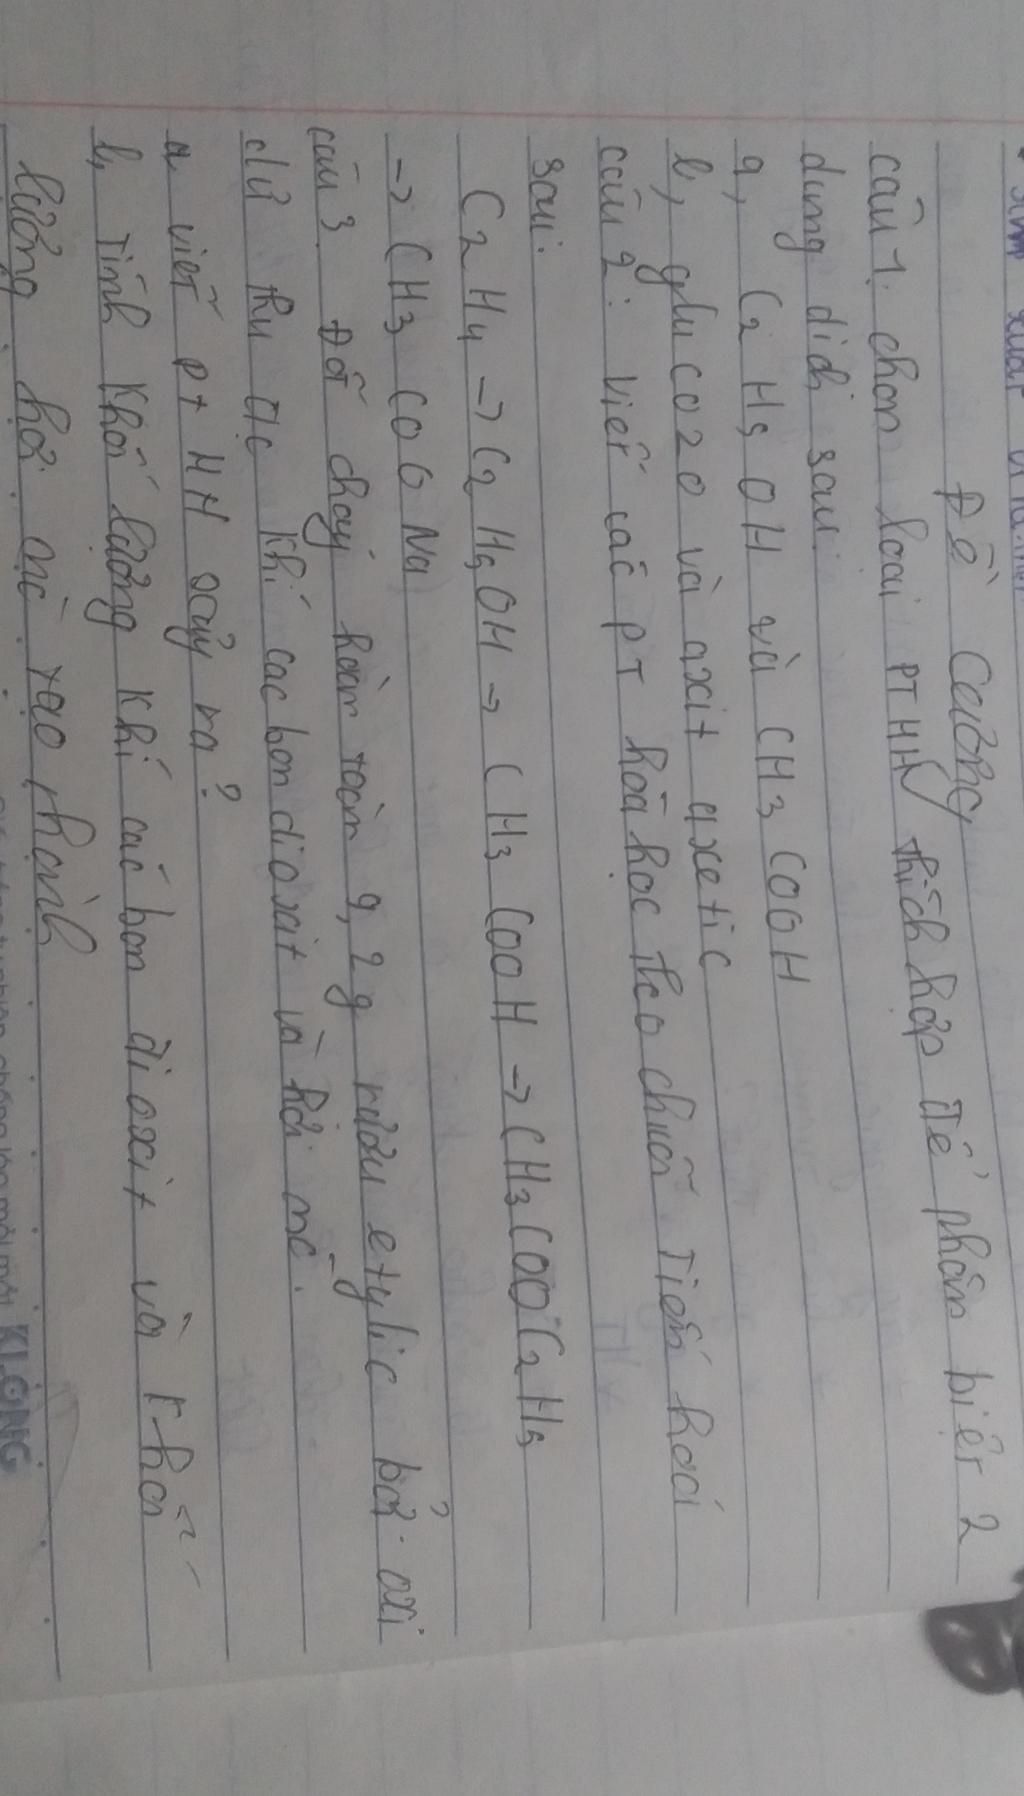 Đề Cương
câu 1: chọn loại PTHH thích hợp để phân biệt 2
dung dịch sau
a, C2H5OH và CH3COOH
b, glucozo và axit axetic
câu 2: Viết các PT hoá học theo chuỗi Tiến hoá
sau:
C2H4 -> C2H5OH -> CH3COOH -> CH3COOC2H5
-> CH3COONa
câu 3 Đốt cháy hoàn toàn 9,2g rượu etylic bởi oxi
dư thu đc khí cacbondioxit và hơi nc.
a, viết pt HH xảy ra?
b, Tính khối lượng khí các bon đi oxit và khối
lượng hơi nc tạo thành
KLONG